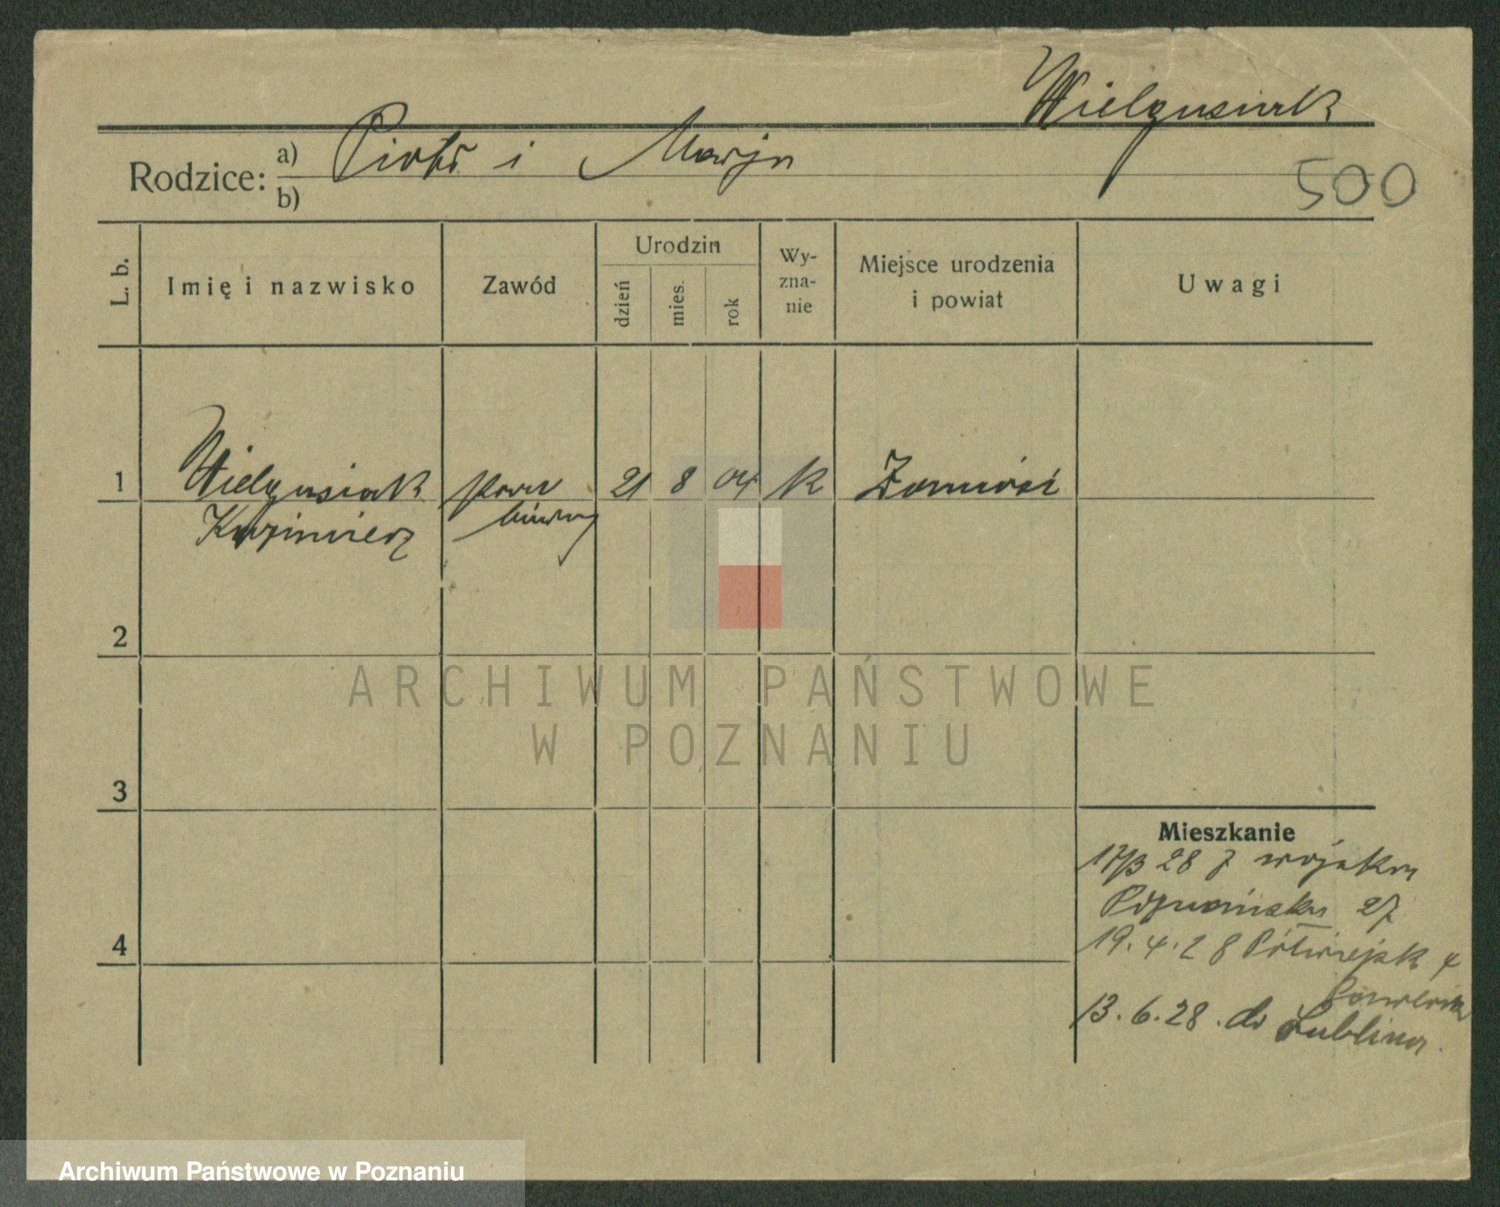 Wielgusiak
Rodzice: a) Piotr i Marja
b)
500
L. b.
Imię i nazwisko
Zawód
Urodzin
dzień
mies.
rok
Wy-
zna-
nie
Miejsce urodzenia
i powiat
Uwagi
1 Wielgusiak 21 8 04 k Zamość
Kazimierz biurowy
2
3
4
Mieszkanie
17/3 28 z wojska
Poznańska 27
19.4.28 Półwiejska 4
13.6.28. do Lublina.
ARCHIWUM PAŃSTWOWE
W POZNANIU
Archiwum Państwowe w Poznaniu